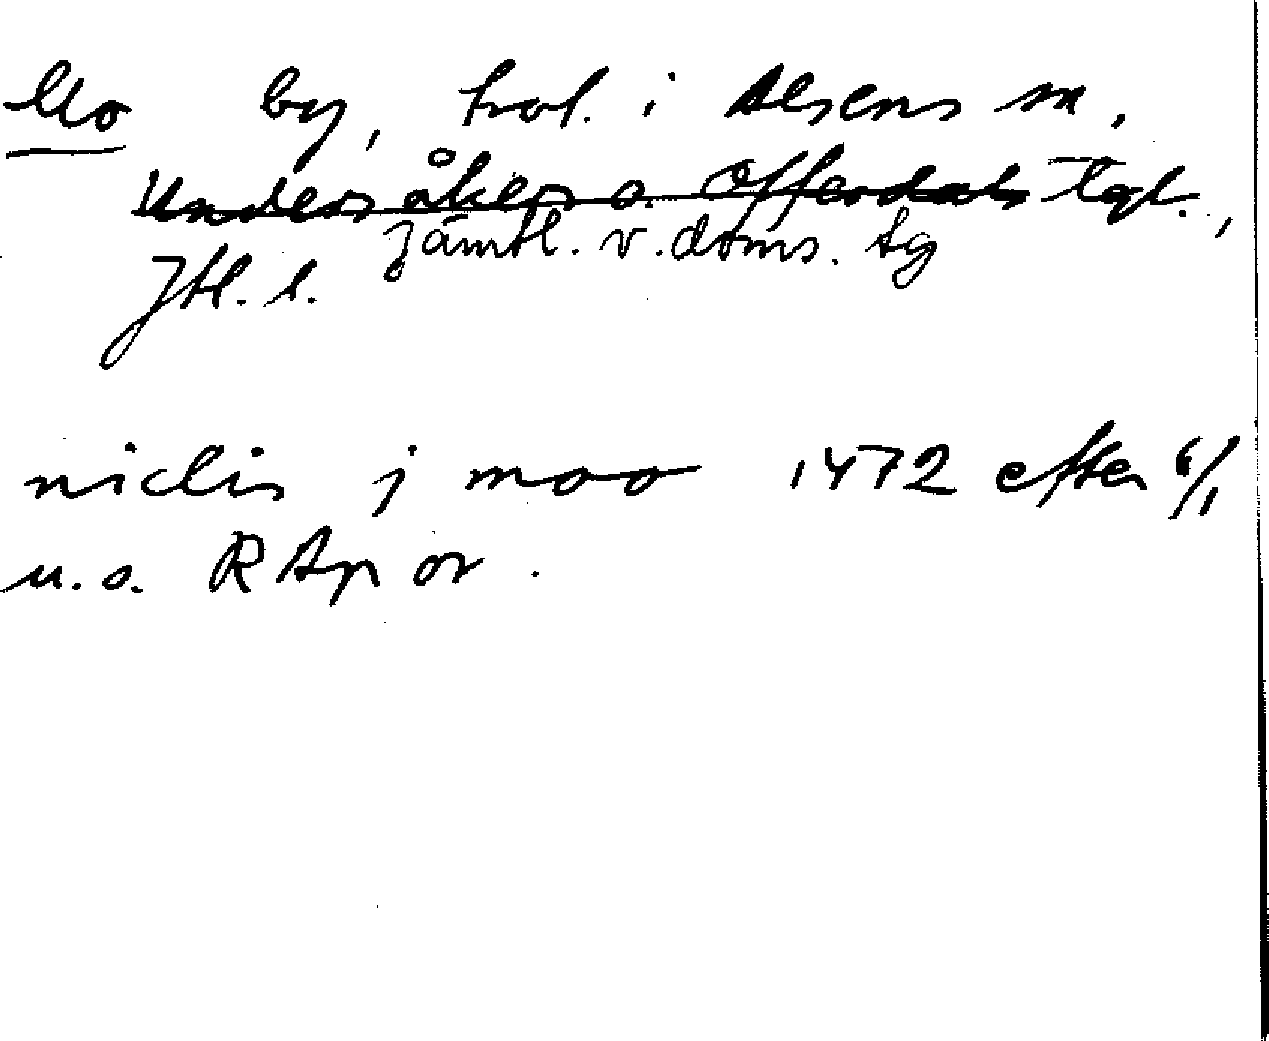 Mo by, trol. i Alsens sn,
Undersåkers o. Offerdals tgl.,
Jämtl. v. doms. tg
Jtl. l.
niclis j moo 1472 efter 6/1
u.o. RAp or.